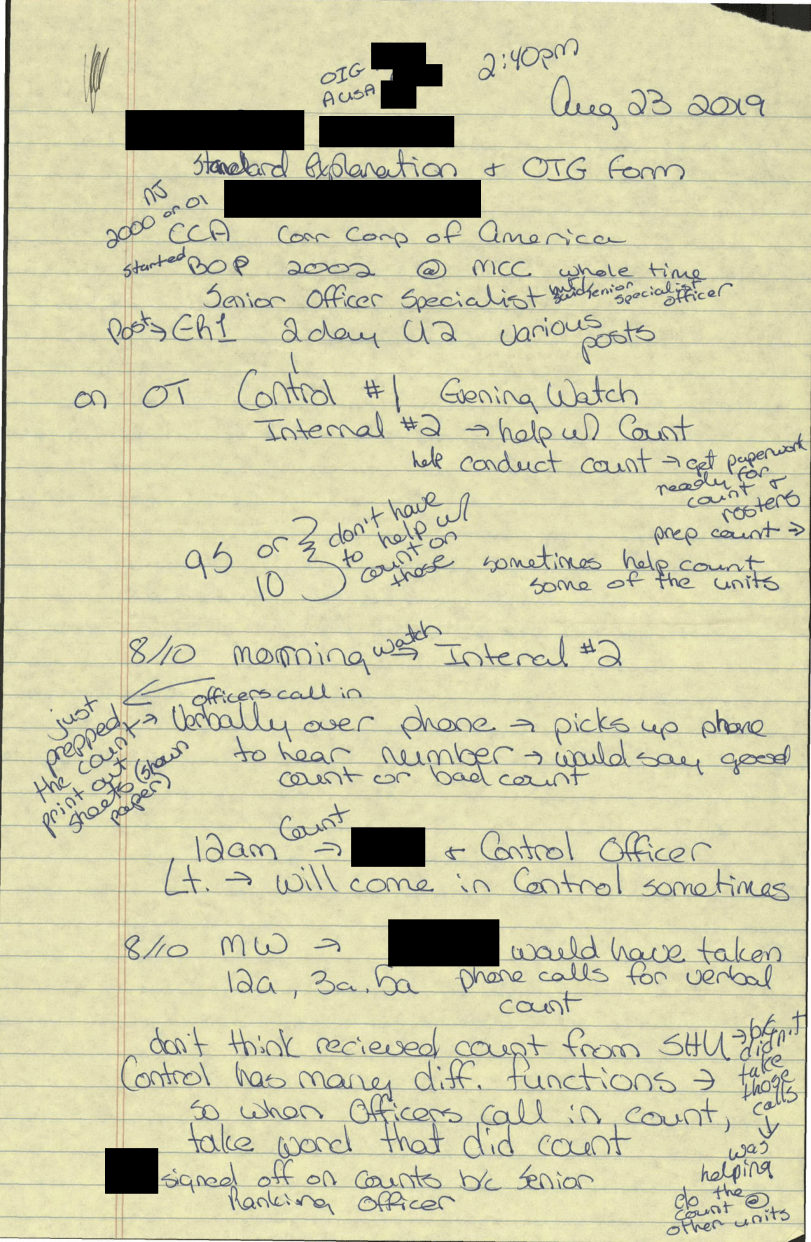 OIG
AUSA
2:40pm
Aug 23 2019
Standard Explanation + OIG Form
NJ
2000 or 01
CCA Corr Corp of America
started BOP 2002 @ MCC whole time
Senior Officer Specialist senior specialist officer
Post → ER1 2 day U2 various posts
on OT Control #1 Evening Watch
Internal #2 → help w/ Count
help conduct count → get paperwork
ready for
count +
rosters
prep count →
95 or 10 } don't have
to help w/
count on
those
sometimes help count
some of the units
8/10 morning watch → Internal #2
officers call in
just
prepped
the count
print out
sheets (shown
paper)
→ Verbally over phone → picks up phone
to hear number → would say good
count or bad count
12am Count → + Control Officer
Lt. → will come in Control sometimes
8/10 MW → would have taken
12a, 3a, 5a phone calls for verbal
count
don't think recieved count from SHU → b/c
didn't
take
those
calls
↓
was
helping
do the
count @
other units
Control has many diff. functions →
so when Officers call in count,
take word that did count
signed off on counts b/c Senior
Ranking Officer